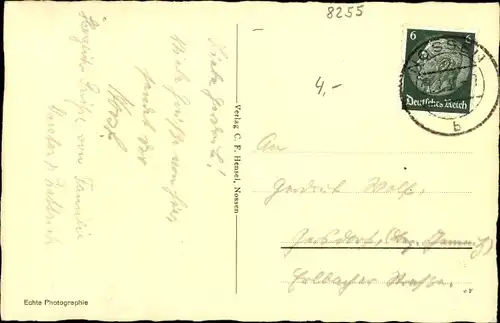 8255
4,-
6
NOSSEN
Deutsches Reich
b
Liebe Gertrud!
Viele Grüße von hier
sendet Dir
Herzliche Grüße von Familie
Verlag C. F. Hensel, Nossen
An
Gertrud Wolf
Gersdorf, Bez. Chemnitz
Erlbacher Straße
Echte Photographie